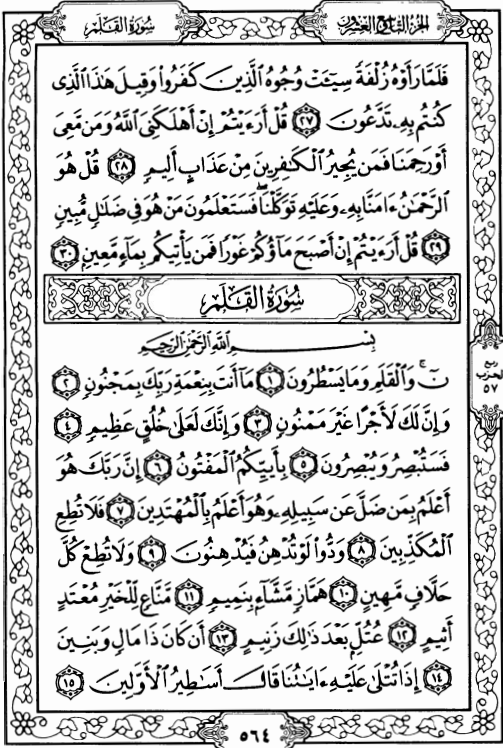 سُورَةُ القَلَمِ
الجُزءُ التَّاسِعُ وَالعِشرُونَ
فَلَمَّا رَأَوۡهُ زُلۡفَةٗ سِيٓـَٔتۡ وُجُوهُ ٱلَّذِينَ كَفَرُواْ وَقِيلَ هَٰذَا ٱلَّذِي
كُنتُم بِهِۦ تَدَّعُونَ ٢٧ قُلۡ أَرَءَيۡتُمۡ إِنۡ أَهۡلَكَنِيَ ٱللَّهُ وَمَن مَّعِيَ
أَوۡ رَحِمَنَا فَمَن يُجِيرُ ٱلۡكَٰفِرِينَ مِنۡ عَذَابٍ أَلِيمٖ ٢٨ قُلۡ هُوَ
ٱلرَّحۡمَٰنُ ءَامَنَّا بِهِۦ وَعَلَيۡهِ تَوَكَّلۡنَاۖ فَسَتَعۡلَمُونَ مَنۡ هُوَ فِي ضَلَٰلٖ مُّبِينٖ
٢٩ قُلۡ أَرَءَيۡتُمۡ إِنۡ أَصۡبَحَ مَآؤُكُمۡ غَوۡرٗا فَمَن يَأۡتِيكُم بِمَآءٖ مَّعِينِۭ ٣٠
سُورَةُ القَلَمِ
بِسۡمِ ٱللَّهِ ٱلرَّحۡمَٰنِ ٱلرَّحِيمِ
نٓۚ وَٱلۡقَلَمِ وَمَا يَسۡطُرُونَ ١ مَآ أَنتَ بِنِعۡمَةِ رَبِّكَ بِمَجۡنُونٖ ٢
وَإِنَّ لَكَ لَأَجۡرًا غَيۡرَ مَمۡنُونٖ ٣ وَإِنَّكَ لَعَلَىٰ خُلُقٍ عَظِيمٖ ٤
فَسَتُبۡصِرُ وَيُبۡصِرُونَ ٥ بِأَييِّكُمُ ٱلۡمَفۡتُونُ ٦ إِنَّ رَبَّكَ هُوَ
أَعۡلَمُ بِمَن ضَلَّ عَن سَبِيلِهِۦ وَهُوَ أَعۡلَمُ بِٱلۡمُهۡتَدِينَ ٧ فَلَا تُطِعِ
ٱلۡمُكَذِّبِينَ ٨ وَدُّواْ لَوۡ تُدۡهِنُ فَيُدۡهِنُونَ ٩ وَلَا تُطِعۡ كُلَّ
حَلَّافٖ مَّهِينٍ ١٠ هَمَّازٖ مَّشَّآءِۭ بِنَمِيمٖ ١١ مَّنَّاعٖ لِّلۡخَيۡرِ مُعۡتَدٍ
أَثِيمٍ ١٢ عُتُلِّۭ بَعۡدَ ذَٰلِكَ زَنِيمٍ ١٣ أَن كَانَ ذَا مَالٖ وَبَنِينَ
١٤ إِذَا تُتۡلَىٰ عَلَيۡهِ ءَايَٰتُنَا قَالَ أَسَٰطِيرُ ٱلۡأَوَّلِينَ ١٥
ربع
الحزب
٥٧
٥٦٤